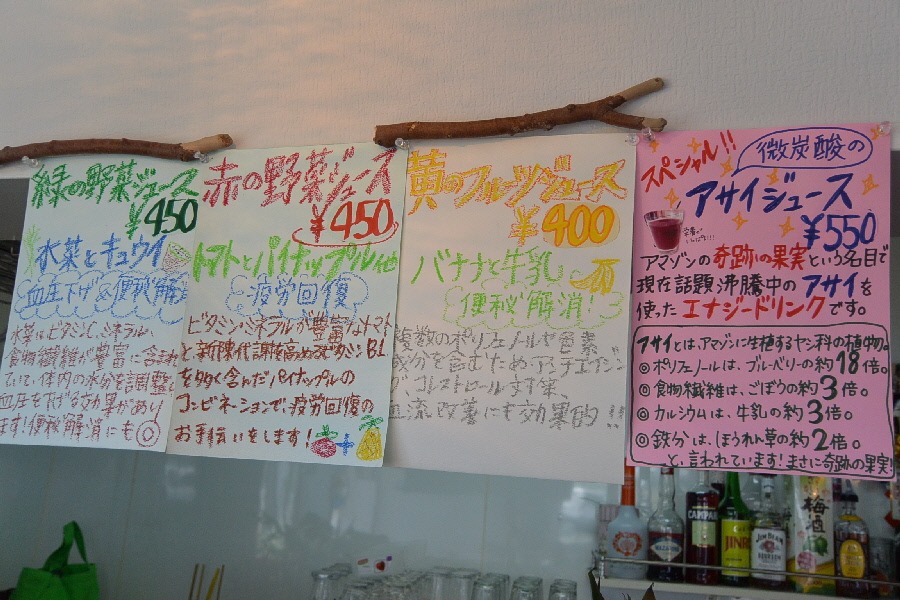 緑の野菜ジュース
¥450
水菜とキュウイ
血圧下げ&便秘解消
水菜はビタミンC、ミネラル、
食物繊維が豊富に含まれ
ていて、体内の水分を調整し
血圧を下げる効果があり
ます!便秘解消にも◎
赤の野菜ジュース
¥450
トマトとパイナップル他
疲労回復
ビタミン・ミネラルが豊富なトマト
と新陳代謝を高めるビタミンB1
を多く含んだパイナップルの
コンビネーションで、疲労回復の
お手伝いをします!
黄のフルーツジュース
¥400
バナナと牛乳
便秘解消!
複数のポリフェノールや色素
成分を含むためアンチエイジン
グ コレストロール
血流改善にも効果的!!
スペシャル!!
微炭酸の
アサイジュース
¥550
アマゾンの奇跡の果実という名目で
現在話題沸騰中のアサイを
使ったエナジードリンクです。
アサイとは、アマゾンに生植するヤシ科の植物。
◎ポリフェノールは、ブルーベリーの約18倍。
◎食物繊維は、ごぼうの約3倍。
◎カルシウムは、牛乳の約3倍。
◎鉄分は、ほうれん草の約2倍。
と、言われています!まさに奇跡の果実!
CAMPARI
JINRO
JIM BEAM
梅酒